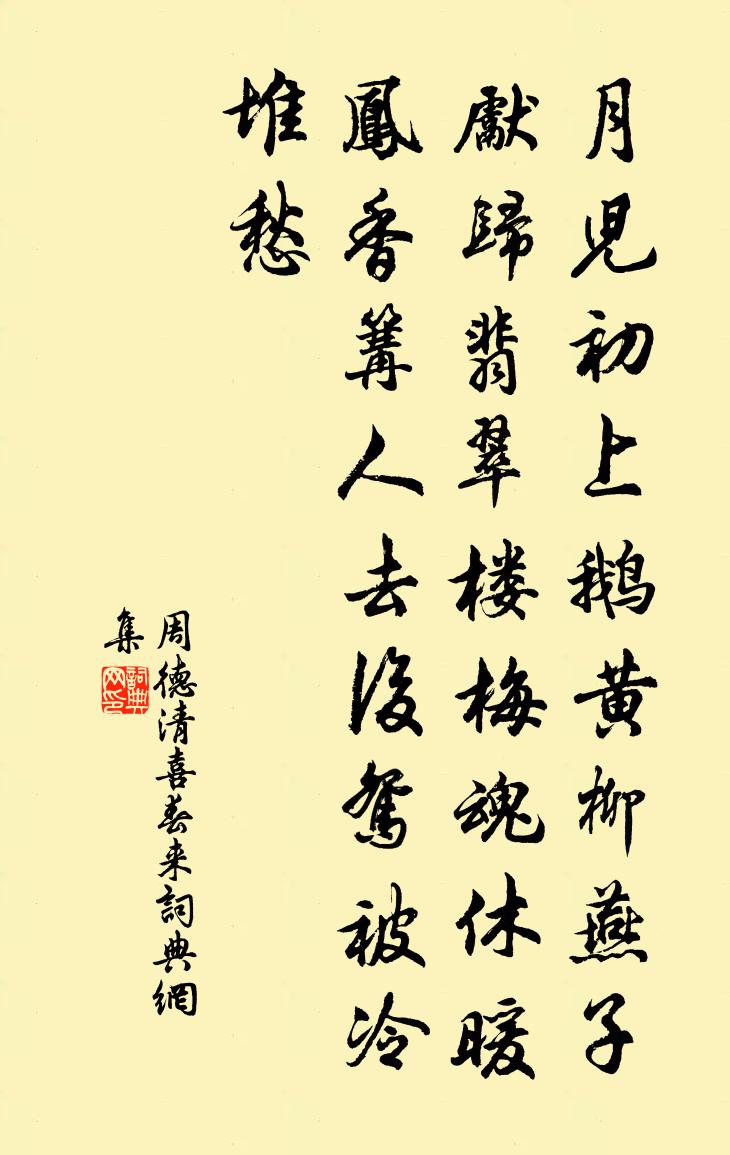 月兒初上鵝黄柳燕子
獻歸翡翠楼梅魂休暖
鳳香篝人去後鴛被冷
堆愁
周德清喜春来詞典網
集
詞典网印